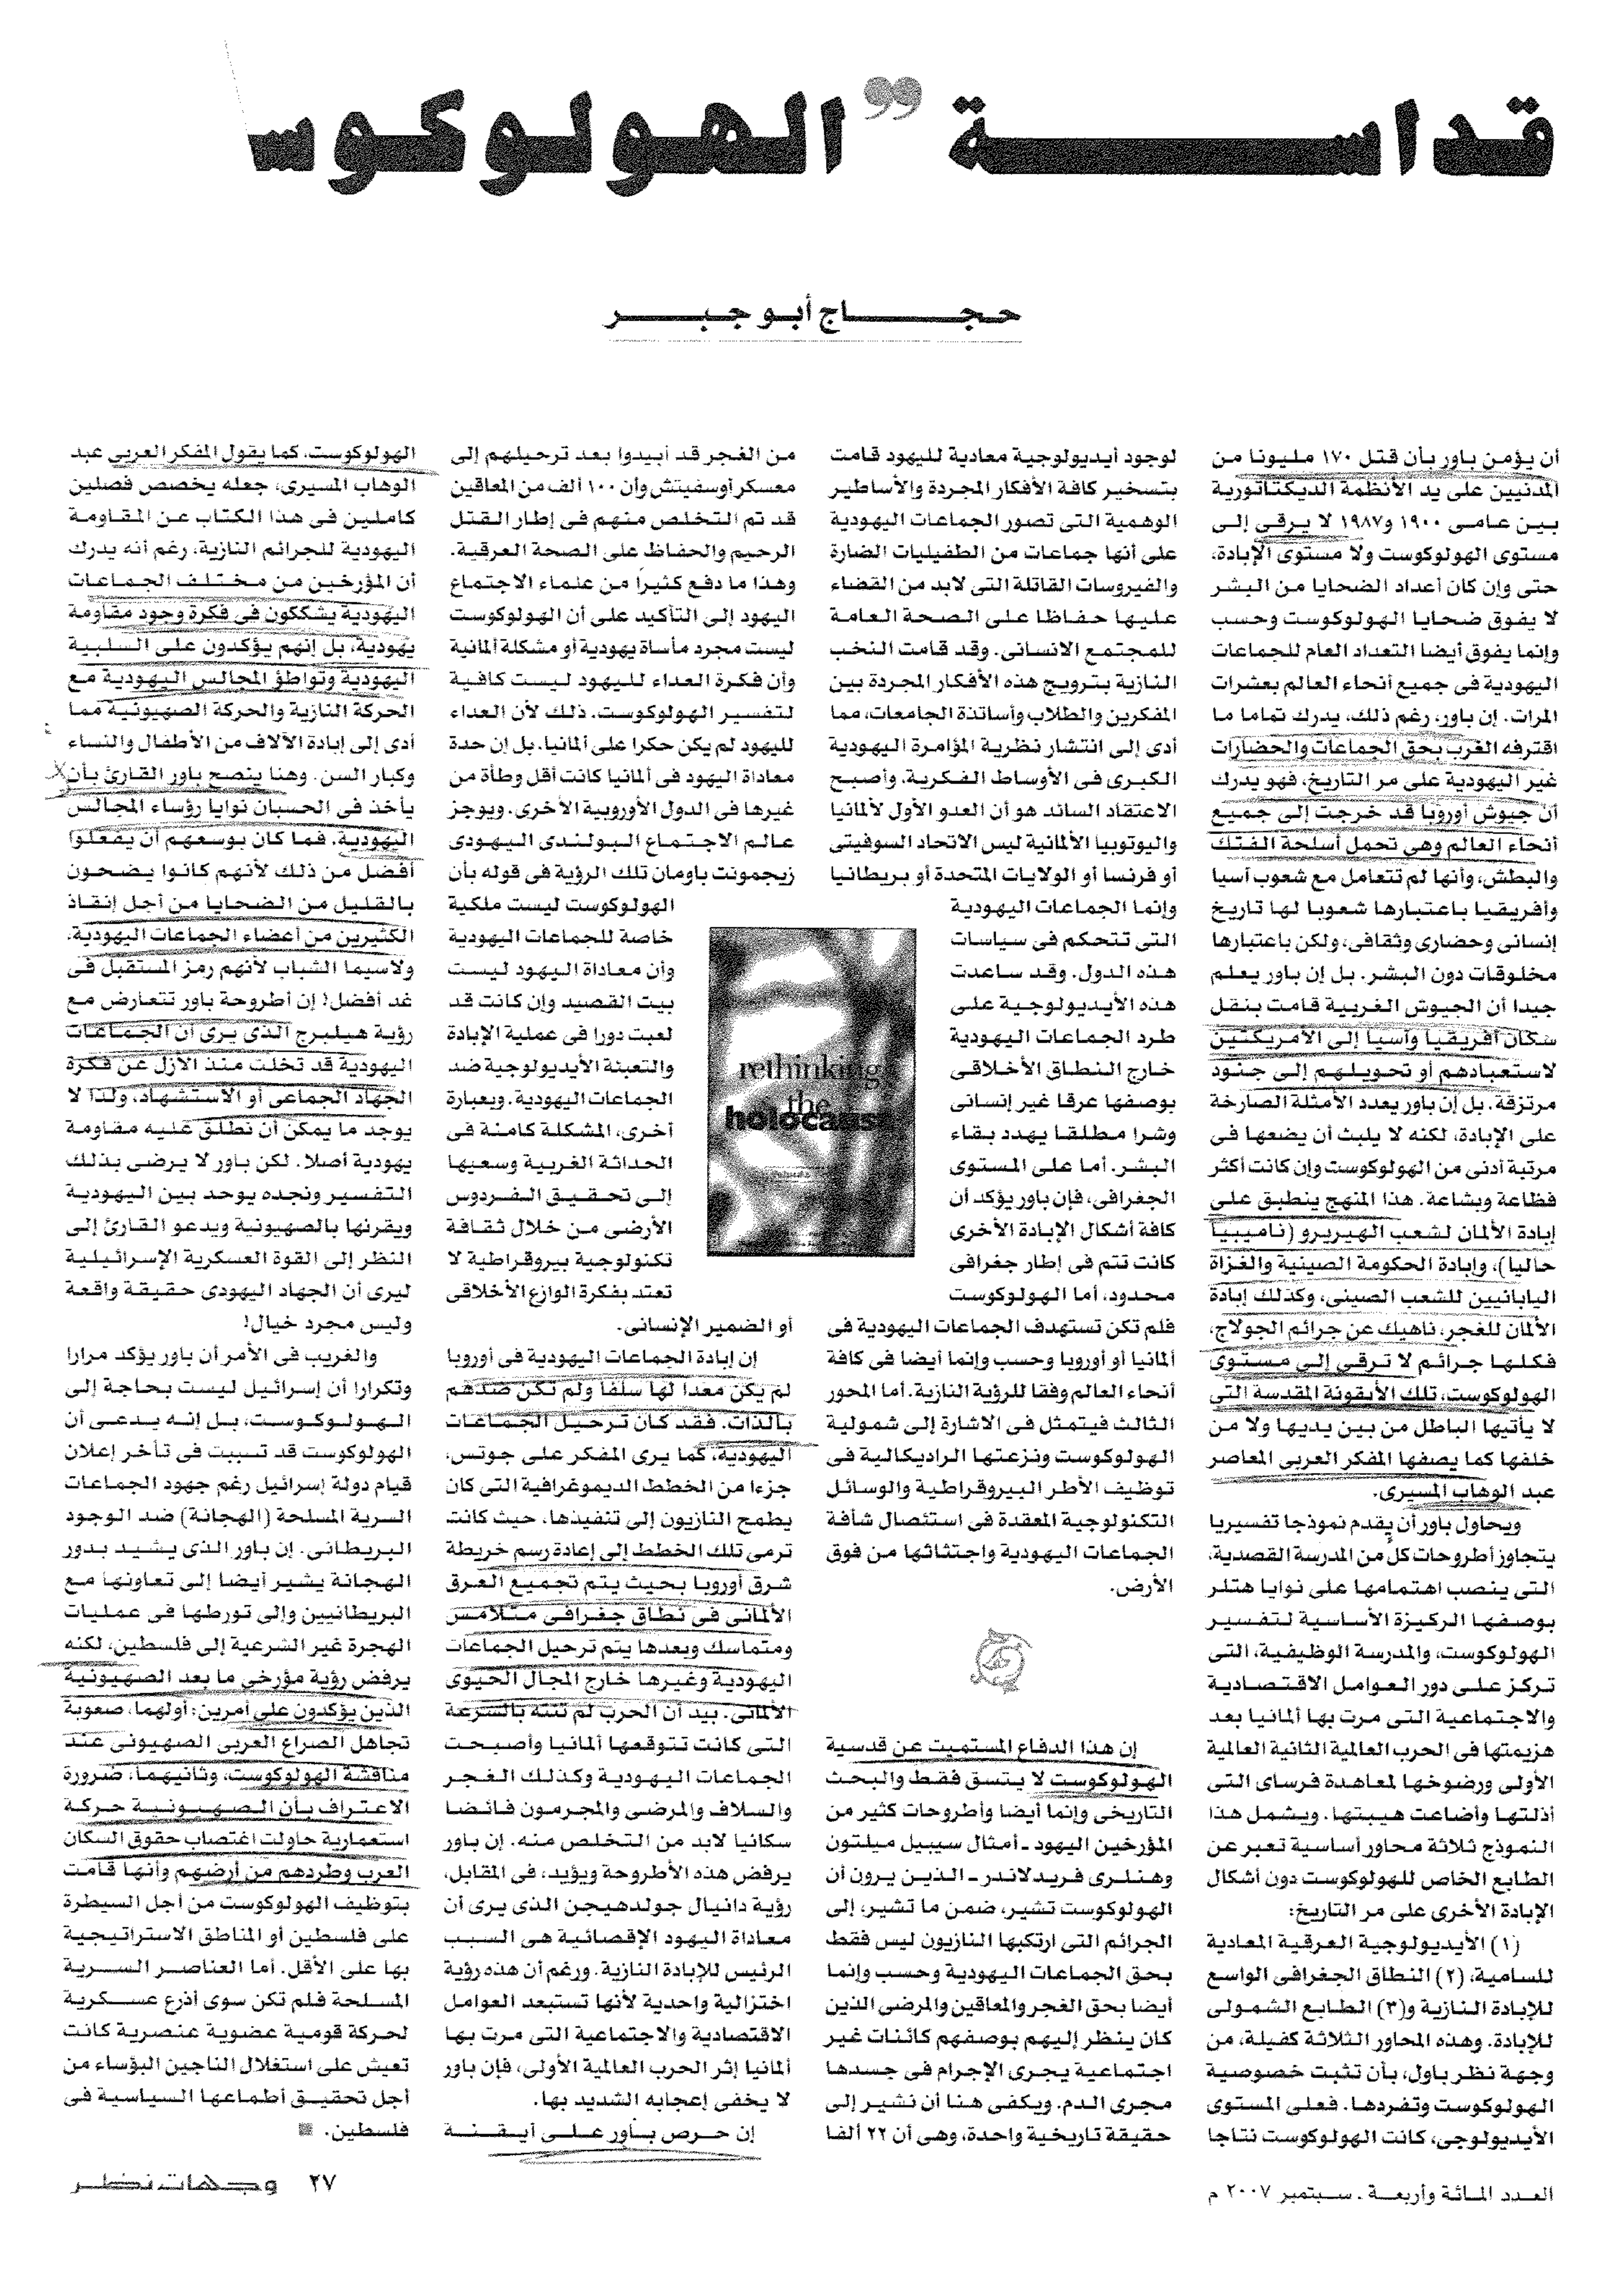 قداسة ”الهولوكوس
حجاج أبو جبر
أن يؤمن باور بأن قتل ١٧٠ مليونا من
المدنيين على يد الأنظمة الديكتاتورية
بين عامى ١٩٠٠ و١٩٨٧ لا يرقى إلى
مستوى الهولوكوست ولا مستوى الإبادة،
حتى وإن كان أعداد الضحايا من البشر
لا يفوق ضحايا الهولوكوست وحسب
وإنما يفوق أيضا التعداد العام للجماعات
اليهودية فى جميع أنحاء العالم بعشرات
المرات. إن باور، رغم ذلك، يدرك تماما ما
اقترفه الغرب بحق الجماعات والحضارات
غير اليهودية على مر التاريخ، فهو يدرك
أن جيوش أوروبا قد خرجت إلى جميع
أنحاء العالم وهى تحمل أسلحة الفتك
والبطش، وأنها لم تتعامل مع شعوب آسيا
وأفريقيا باعتبارها شعوبا لها تاريخ
إنسانى وحضارى وثقافى، ولكن باعتبارها
مخلوقات دون البشر. بل إن باور يعلم
جيدا أن الجيوش الغربية قامت بنقل
سكان أفريقيا وآسيا إلى الأمريكتين
لاستعبادهم أو تحويلهم إلى جنود
مرتزقة. بل إن باور يعدد الأمثلة الصارخة
على الإبادة، لكنه لا يلبث أن يضعها فى
مرتبة أدنى من الهولوكوست وإن كانت أكثر
فظاعة وبشاعة. هذا المنهج ينطبق على
إبادة الألمان لشعب الهيريرو (ناميبيا
حاليا)، وإبادة الحكومة الصينية والغزاة
اليابانيين للشعب الصينى، وكذلك إبادة
الألمان للغجر، ناهيك عن جرائم الجولاج،
فكلها جرائم لا ترقى إلى مستوى
الهولوكوست، تلك الأيقونة المقدسة التى
لا يأتيها الباطل من بين يديها ولا من
خلفها كما يصفها المفكر العربى المعاصر
عبد الوهاب المسيرى.
ويحاول باور أن يقدم نموذجا تفسيريا
يتجاوز أطروحات كل من المدرسة القصدية،
التى ينصب اهتمامها على نوايا هتلر
بوصفها الركيزة الأساسية لتفسير
الهولوكوست، والمدرسة الوظيفية، التى
تركز على دور العوامل الاقتصادية
والاجتماعية التى مرت بها ألمانيا بعد
هزيمتها فى الحرب العالمية الثانية العالمية
الأولى ورضوخها لمعاهدة فرساى التى
أذلتها وأضاعت هيبتها. ويشمل هذا
النموذج ثلاثة محاور أساسية تعبر عن
الطابع الخاص للهولوكوست دون أشكال
الإبادة الأخرى على مر التاريخ:
(١) الأيديولوجية العرقية المعادية
للسامية، (٢) النطاق الجغرافى الواسع
للإبادة النازية و(٣) الطابع الشمولى
للإبادة. وهذه المحاور الثلاثة كفيلة، من
وجهة نظر باول، بأن تثبت خصوصية
الهولوكوست وتفردها. فعلى المستوى
الأيديولوجى، كانت الهولوكوست نتاجا
لوجود أيديولوجية معادية لليهود قامت
بتسخير كافة الأفكار المجردة والأساطير
الوهمية التى تصور الجماعات اليهودية
على أنها جماعات من الطفيليات الضارة
والفيروسات القاتلة التى لابد من القضاء
عليها حفاظا على الصحة العامة
للمجتمع الانسانى. وقد قامت النخب
النازية بترويج هذه الأفكار المجردة بين
المفكرين والطلاب وأساتذة الجامعات، مما
أدى إلى انتشار نظرية المؤامرة اليهودية
الكبرى فى الأوساط الفكرية، وأصبح
الاعتقاد السائد هو أن العدو الأول لألمانيا
واليوتوبيا الألمانية ليس الاتحاد السوفيتى
أو فرنسا أو الولايات المتحدة أو بريطانيا
وإنما الجماعات اليهودية
التى تتحكم فى سياسات
هذه الدول. وقد ساعدت
هذه الأيديولوجية على
طرد الجماعات اليهودية
خارج النطاق الأخلاقى
بوصفها عرقا غير إنسانى
وشرا مطلقا يهدد بقاء
البشر. أما على المستوى
الجغرافى، فإن باور يؤكد أن
كافة أشكال الإبادة الأخرى
كانت تتم فى إطار جغرافى
محدود، أما الهولوكوست
فلم تكن تستهدف الجماعات اليهودية فى
ألمانيا أو أوروبا وحسب وإنما أيضا فى كافة
أنحاء العالم وفقا للرؤية النازية. أما المحور
الثالث فيتمثل فى الاشارة إلى شمولية
الهولوكوست ونزعتها الراديكالية فى
توظيف الأطر البيروقراطية والوسائل
التكنولوجية المعقدة فى استئصال شأفة
الجماعات اليهودية واجتثاثها من فوق
الأرض.
إن هذا الدفاع المستميت عن قدسية
الهولوكوست لا يتسق فقط والبحث
التاريخى وإنما أيضا وأطروحات كثير من
المؤرخين اليهود ـ أمثال سيبيل ميلتون
وهنلرى فريدلاندر ـ الذين يرون أن
الهولوكوست تشير، ضمن ما تشير، إلى
الجرائم التى ارتكبها النازيون ليس فقط
بحق الجماعات اليهودية وحسب وإنما
أيضا بحق الغجر والمعاقين والمرضى الذين
كان ينظر إليهم بوصفهم كائنات غير
اجتماعية يجرى الإجرام فى جسدها
مجرى الدم. ويكفى هنا أن نشير إلى
حقيقة تاريخية واحدة، وهى أن ٢٢ ألفا
من الغجر قد أبيدوا بعد ترحيلهم إلى
معسكر أوسفيتش وأن ١٠٠ ألف من المعاقين
قد تم التخلص منهم فى إطار القتل
الرحيم والحفاظ على الصحة العرقية.
وهذا ما دفع كثيرا من علماء الاجتماع
اليهود إلى التأكيد على أن الهولوكوست
ليست مجرد مأساة يهودية أو مشكلة ألمانية
وأن فكرة العداء لليهود ليست كافية
لتفسير الهولوكوست. ذلك لأن العداء
لليهود لم يكن حكرا على ألمانيا. بل إن حدة
معاداة اليهود فى ألمانيا كانت أقل وطأة من
غيرها فى الدول الأوروبية الأخرى. ويوجز
عالم الاجتماع البولندى اليهودى
زيجمونت باومان تلك الرؤية فى قوله بأن
الهولوكوست ليست ملكية
خاصة للجماعات اليهودية
وأن معاداة اليهود ليست
بيت القصيد وإن كانت قد
لعبت دورا فى عملية الإبادة
والتعبئة الأيديولوجية ضد
الجماعات اليهودية. وبعبارة
أخرى، المشكلة كامنة فى
الحداثة الغربية وسعيها
إلى تحقيق الفردوس
الأرضى من خلال ثقافة
تكنولوجية بيروقراطية لا
تعتد بفكرة الوازع الأخلاقى
أو الضمير الإنسانى.
إن إبادة الجماعات اليهودية فى أوروبا
لم يكن معدا لها سلفا ولم تكن ضدهم
بالذات. فقد كان ترحيل الجماعات
اليهودية، كما يرى المفكر على جوتس،
جزءا من الخطط الديموغرافية التى كان
يطمح النازيون إلى تنفيذها، حيث كانت
ترمى تلك الخطط إلى إعادة رسم خريطة
شرق أوروبا بحيث يتم تجميع العرق
الألمانى فى نطاق جغرافى متلامس
ومتماسك وبعدها يتم ترحيل الجماعات
اليهودية وغيرها خارج المجال الحيوى
الألمانى. بيد أن الحرب لم تنته بالسرعة
التى كانت تتوقعها ألمانيا وأصبحت
الجماعات اليهودية وكذلك الغجر
والسلاف والمرضى والمجرمون فائضا
سكانيا لابد من التخلص منه. إن باور
يرفض هذه الأطروحة ويؤيد، فى المقابل،
رؤية دانيال جولدهيجن الذى يرى أن
معاداة اليهود الإقصائية هى السبب
الرئيس للإبادة النازية. ورغم أن هذه رؤية
اختزالية واحدية لأنها تستبعد العوامل
الاقتصادية والاجتماعية التى مرت بها
ألمانيا إثر الحرب العالمية الأولى، فإن باور
لا يخفى إعجابه الشديد بها.
إن حرص باور على أيقنة
الهولوكوست، كما يقول المفكر العربى عبد
الوهاب المسيرى، جعله يخصص فصلين
كاملين فى هذا الكتاب عن المقاومة
اليهودية للجرائم النازية، رغم أنه يدرك
أن المؤرخين من مختلف الجماعات
اليهودية يشككون فى فكرة وجود مقاومة
يهودية، بل إنهم يؤكدون على السلبية
اليهودية وتواطؤ المجالس اليهودية مع
الحركة النازية والحركة الصهيونية مما
أدى إلى إبادة الآلاف من الأطفال والنساء
وكبار السن. وهنا ينصح باور القارئ بأن
يأخذ فى الحسبان نوايا رؤساء المجالس
اليهودية. فما كان بوسعهم أن يفعلوا
أفضل من ذلك لأنهم كانوا يضحون
بالقليل من الضحايا من أجل إنقاذ
الكثيرين من أعضاء الجماعات اليهودية،
ولاسيما الشباب لأنهم رمز المستقبل فى
غد أفضل! إن أطروحة باور تتعارض مع
رؤية هيلبرج الذى يرى أن الجماعات
اليهودية قد تخلت منذ الأزل عن فكرة
الجهاد الجماعى أو الاستشهاد، ولذا لا
يوجد ما يمكن أن نطلق عليه مقاومة
يهودية أصلا. لكن باور لا يرضى بذلك
التفسير ونجده يوحد بين اليهودية
ويقرنها بالصهيونية ويدعو القارئ إلى
النظر إلى القوة العسكرية الإسرائيلية
ليرى أن الجهاد اليهودى حقيقة واقعة
وليس مجرد خيال!
والغريب فى الأمر أن باور يؤكد مرارا
وتكرارا أن إسرائيل ليست بحاجة إلى
الهولوكوست، بل إنه يدعى أن
الهولوكوست قد تسببت فى تأخر إعلان
قيام دولة إسرائيل رغم جهود الجماعات
السرية المسلحة (الهجانة) ضد الوجود
البريطانى. إن باور الذى يشيد بدور
الهجانة يشير أيضا إلى تعاونها مع
البريطانيين وإلى تورطها فى عمليات
الهجرة غير الشرعية إلى فلسطين، لكنه
يرفض رؤية مؤرخى ما بعد الصهيونية
الذين يؤكدون على أمرين: أولهما، صعوبة
تجاهل الصراع العربى الصهيونى عند
مناقشة الهولوكوست، وثانيهما، ضرورة
الاعتراف بأن الصهيونية حركة
استعمارية حاولت اغتصاب حقوق السكان
العرب وطردهم من أرضهم وأنها قامت
بتوظيف الهولوكوست من أجل السيطرة
على فلسطين أو المناطق الاستراتيجية
بها على الأقل. أما العناصر السرية
المسلحة فلم تكن سوى أذرع عسكرية
لحركة قومية عضوية عنصرية كانت
تعيش على استغلال الناجين البؤساء من
أجل تحقيق أطماعها السياسية فى
فلسطين.
rethinking
the
holocaust
العدد المائة وأربعة ـ سبتمبر ٢٠٠٧ م
٢٧ وجهات نظر